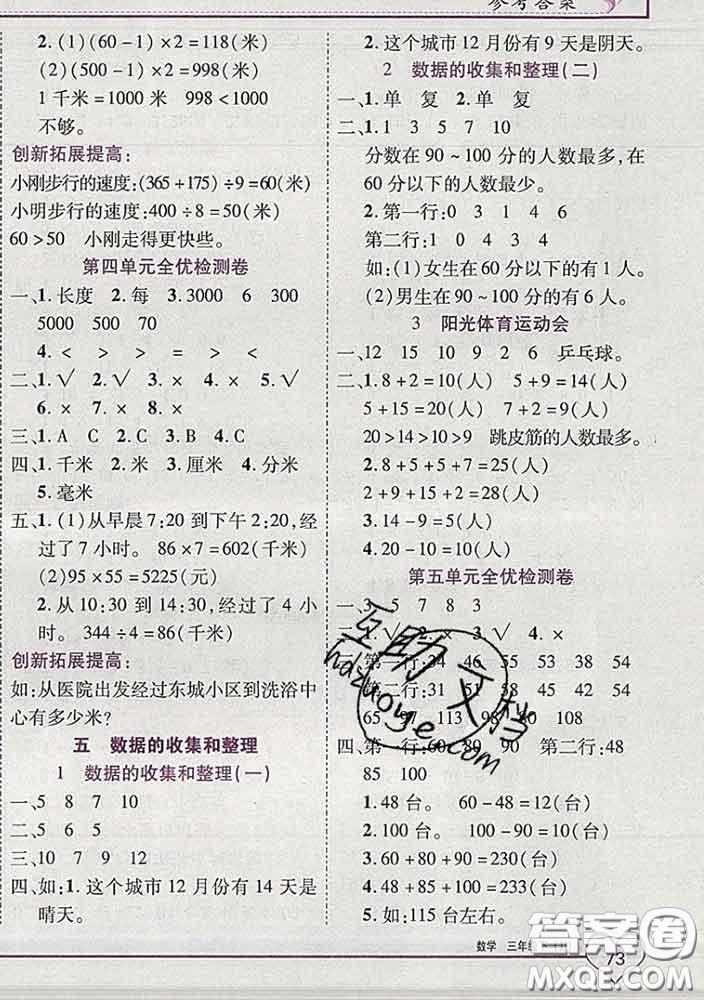 参考答案
2. (1)(60-1)×2=118(米)
(2)(500-1)×2=998(米)
1千米=1000米 998<1000
不够。
创新拓展提高:
小刚步行的速度:(365+175)÷9=60(米)
小明步行的速度:400÷8=50(米)
60>50 小刚走得更快些。
第四单元全优检测卷
一、1.长度 2.每 3.3000 6 300
5000 500 70
4.< > > = > <
二、1.√ 2.× 3.× 4.× 5.√
6.× 7.× 8.×
三、1.A C 2.B 3.C 4.C
四、1.千米 2.米 3.厘米 4.分米
5.毫米
五、1.(1)从早晨7:20到下午2:20,经
过了7小时。 86×7=602(千米)
(2)95×55=5225(元)
2.从10:30到14:30,经过了4小
时。 344÷4=86(千米)
创新拓展提高:
如:从医院出发经过东城小区到洗浴中
心有多少米?
五 数据的收集和整理
1 数据的收集和整理(一)
一、5 8 7 10
二、5 6 5
三、10 7 9 12
四、如:1.这个城市12月份有14天是
晴天。
2.这个城市12月份有9天是阴天。
2 数据的收集和整理(二)
一、1.单 复 2.单 复
二、1.1 3 5 7 10
分数在90~100分的人数最多,在
60分以下的人数最少。
2.第一行:0 3 1 4 6
第二行:1 0 4 3 4
如:(1)女生在60分以下的有1人。
(2)男生在90~100分的有6人。
3 阳光体育运动会
一、12 15 10 9 2 6 乒乓球。
二、1.8+2=10(人) 5+9=14(人)
5+15=20(人) 7+2=9(人)
20>14>10>9 跳皮筋的人数最多。
2.8+5+5+7=25(人)
2+9+15+2=28(人)
3.14-9=5(人)
4.20-10=10(人)
第五单元全优检测卷
一、3 5 7 8 3
二、1.√ 2.× 3.√ 4.×
第一行:34 46 55 53 38 54
第二行:31 51 58 45 42 54
65 97 113 98 80 108
四、第一行:60 80 90 第二行:48
85 100
1.48台。 60-48=12(台)
2.100台。 100-90=10(台)
3.60+80+90=230(台)
4.48+85+100=233(台)
5.如:115台左右。
互助文档
hdzuoye.com
数学 三年级
73
答案圈
MXQE.COM